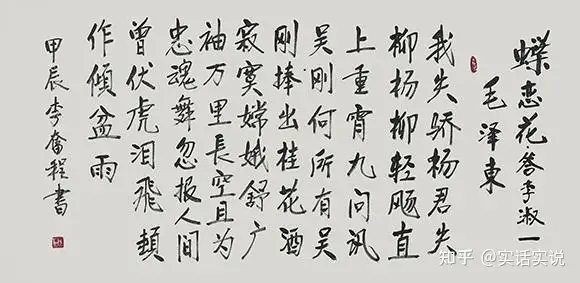 蝶恋花·答李淑一
毛泽東
我失骄杨君失
柳杨柳轻飏直
上重霄九问讯
吴刚何所有吴
刚捧出桂花酒
寂寞嫦娥舒广
袖万里長空且为
忠魂舞忽报人间
曾伏虎泪飛頓
作傾盆雨
甲辰李奮程書
知乎 @实话实说